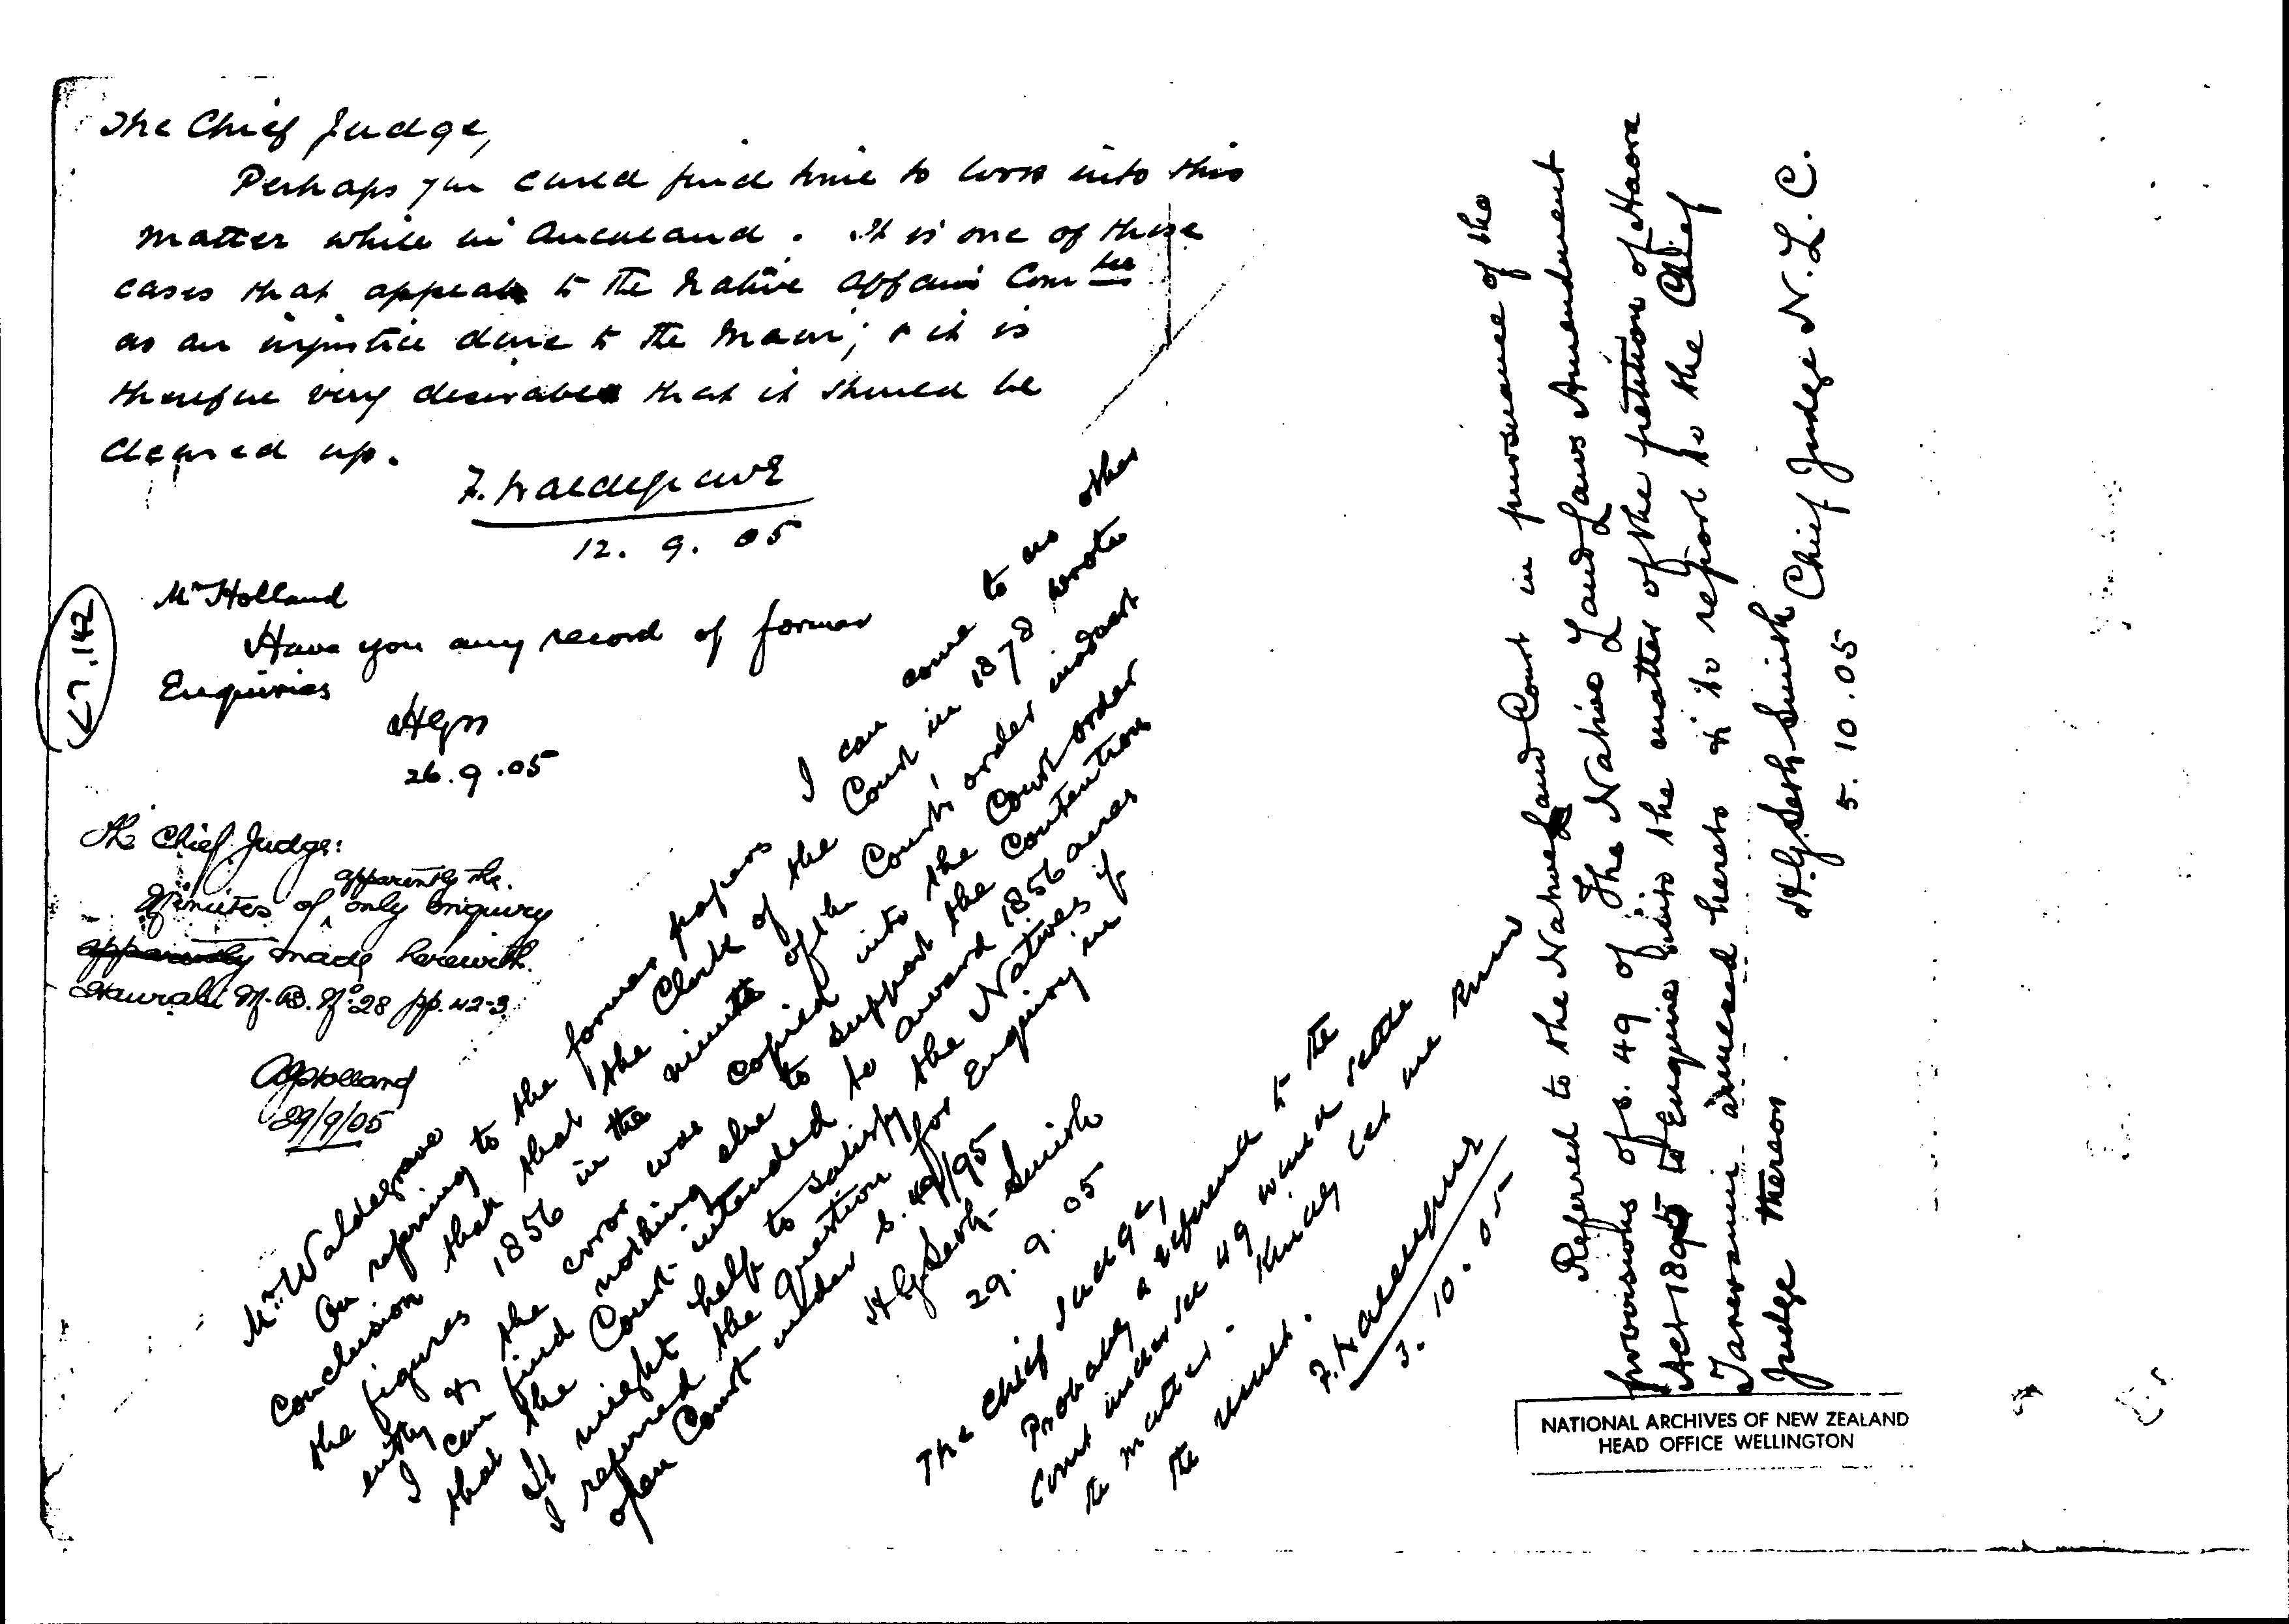 The Chief Judge,
Perhaps you could find time to look into this
matter while in Auckland. It is one of those
cases that appeals to the Native Affairs Com tee
as an injustice done to the Maori; & it is
therefore very desirable that it should be
cleared up.
F. Waldegrave
12. 9. 05
Mr Holland
Have you any record of former
Enquiries
HGSS
26.9.05
The Chief Judge:
apparently the
Minutes of only enquiry
apparently made herewith.
Hauraki M.B. No 28 pp. 42-3
Holland
29/9/05
Mr Waldegrave
On referring to the former papers I can come to no other
conclusion than that the Clerk of the Court in 1878 wrote
the figures 1856 in the minute of the Court's order
entry & the error was copied into the Court order
I can find nothing else to support the contention
that the Court intended to award 1856 acres
It might help to satisfy the Natives if
I referred the question for Enquiry in
open Court under S. 49/95
H G Seth-Smith
29. 9. 05
The Chief Judge,
Probably a reference to the
Court under sec 49 would settle
the matter. Kindly let me know
the result.
F. Waldegrave
3. 10. 05
Referred to the Native Land Court in pursuance of the
provisions of s. 49 of The Native Land Laws Amendment
Act 1895 to Enquire into the matter of the petition of Haora
Tareranui annexed hereto & to report to the Chief
Judge thereon.
H. G. Seth Smith Chief Judge N. L. C.
5. 10. 05
NATIONAL ARCHIVES OF NEW ZEALAND
HEAD OFFICE WELLINGTON